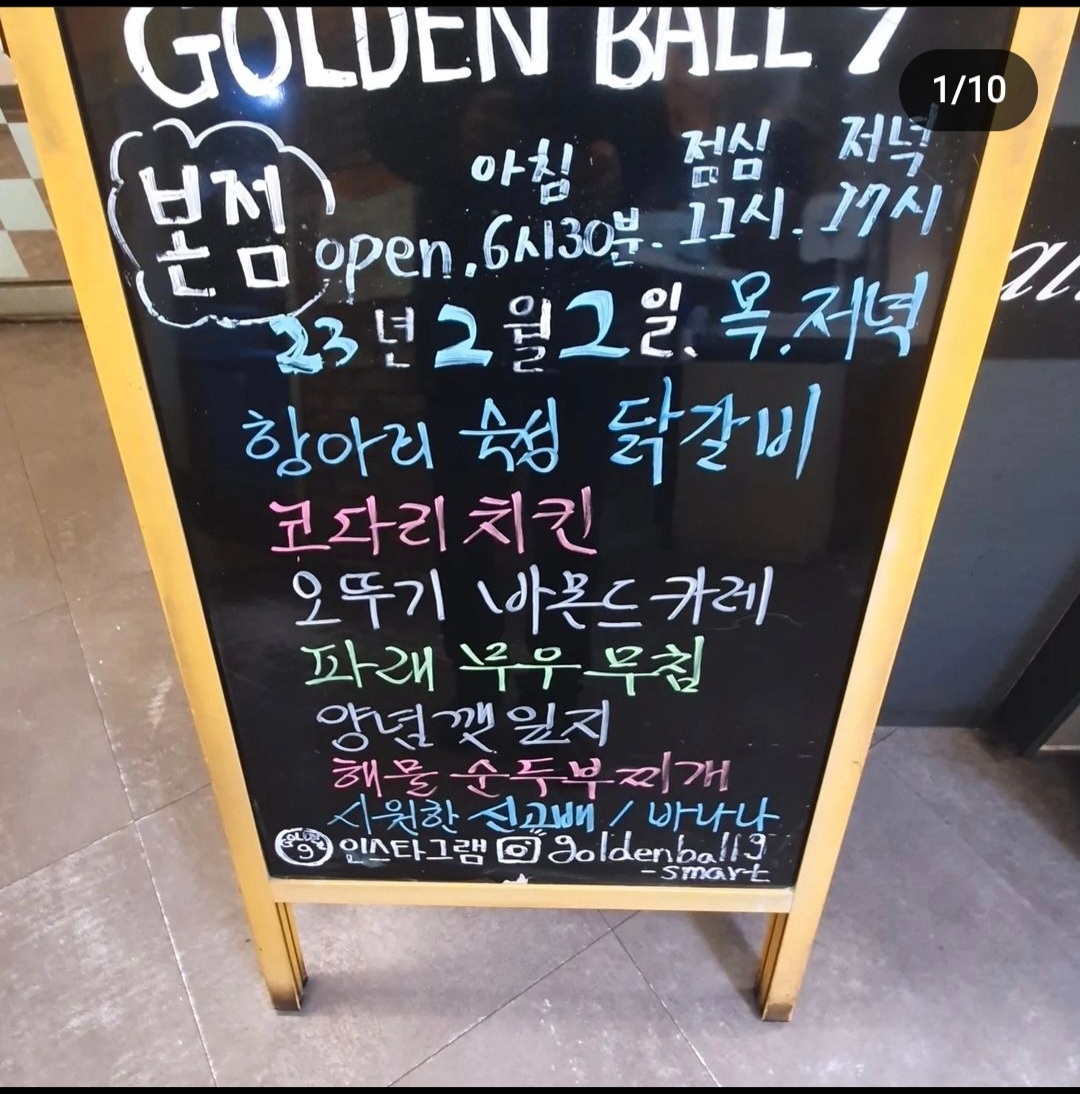 GOLDEN BALL 9
1/10
본점
아침 점심 저녁
open. 6시30분. 11시. 17시
23년 2월 2일. 목. 저녁
항아리 숙성 닭갈비
코다리 치킨
오뚜기 바몬드 카레
파래 무우 무침
양념 깻잎지
해물 순두부찌개
시원한 선고배 / 바나나
인스타그램 goldenball9
-smart